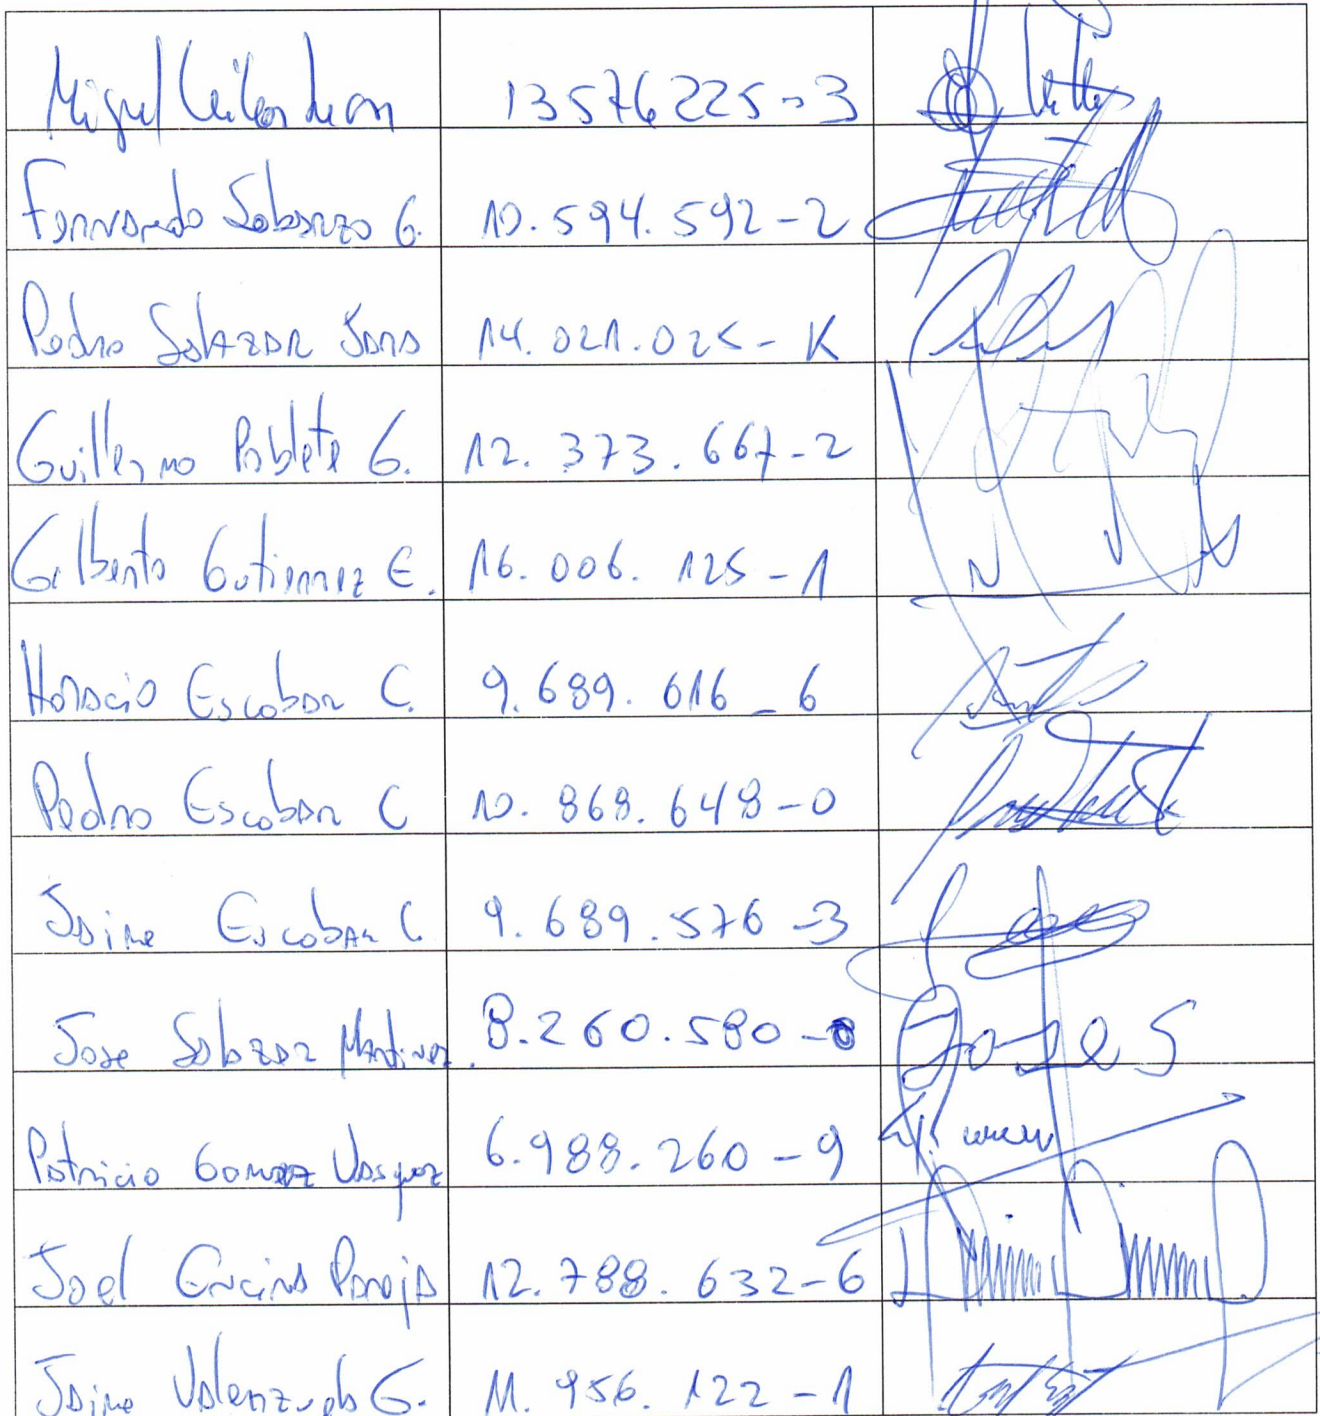 Miguel 13576225-3
Fernando Sabanzo G. 10.594.592-2
Pedro Salazar Jara 14.021.025-K
Guillermo Poblete G. 12.373.667-2
Gilberto Gutierrez E. 16.006.125-1
Horacio Escobar C. 9.689.616-6
Pedro Escobar C 10.868.648-0
Jaime Escobar C. 9.689.576-3
Jose Salazar Martinez. 8.260.580-0 Jose S
Patricio Gomez Vasquez 6.988.260-9
Joel Encina Pareja 12.788.632-6
Jaime Valenzuela G. 11.956.122-1